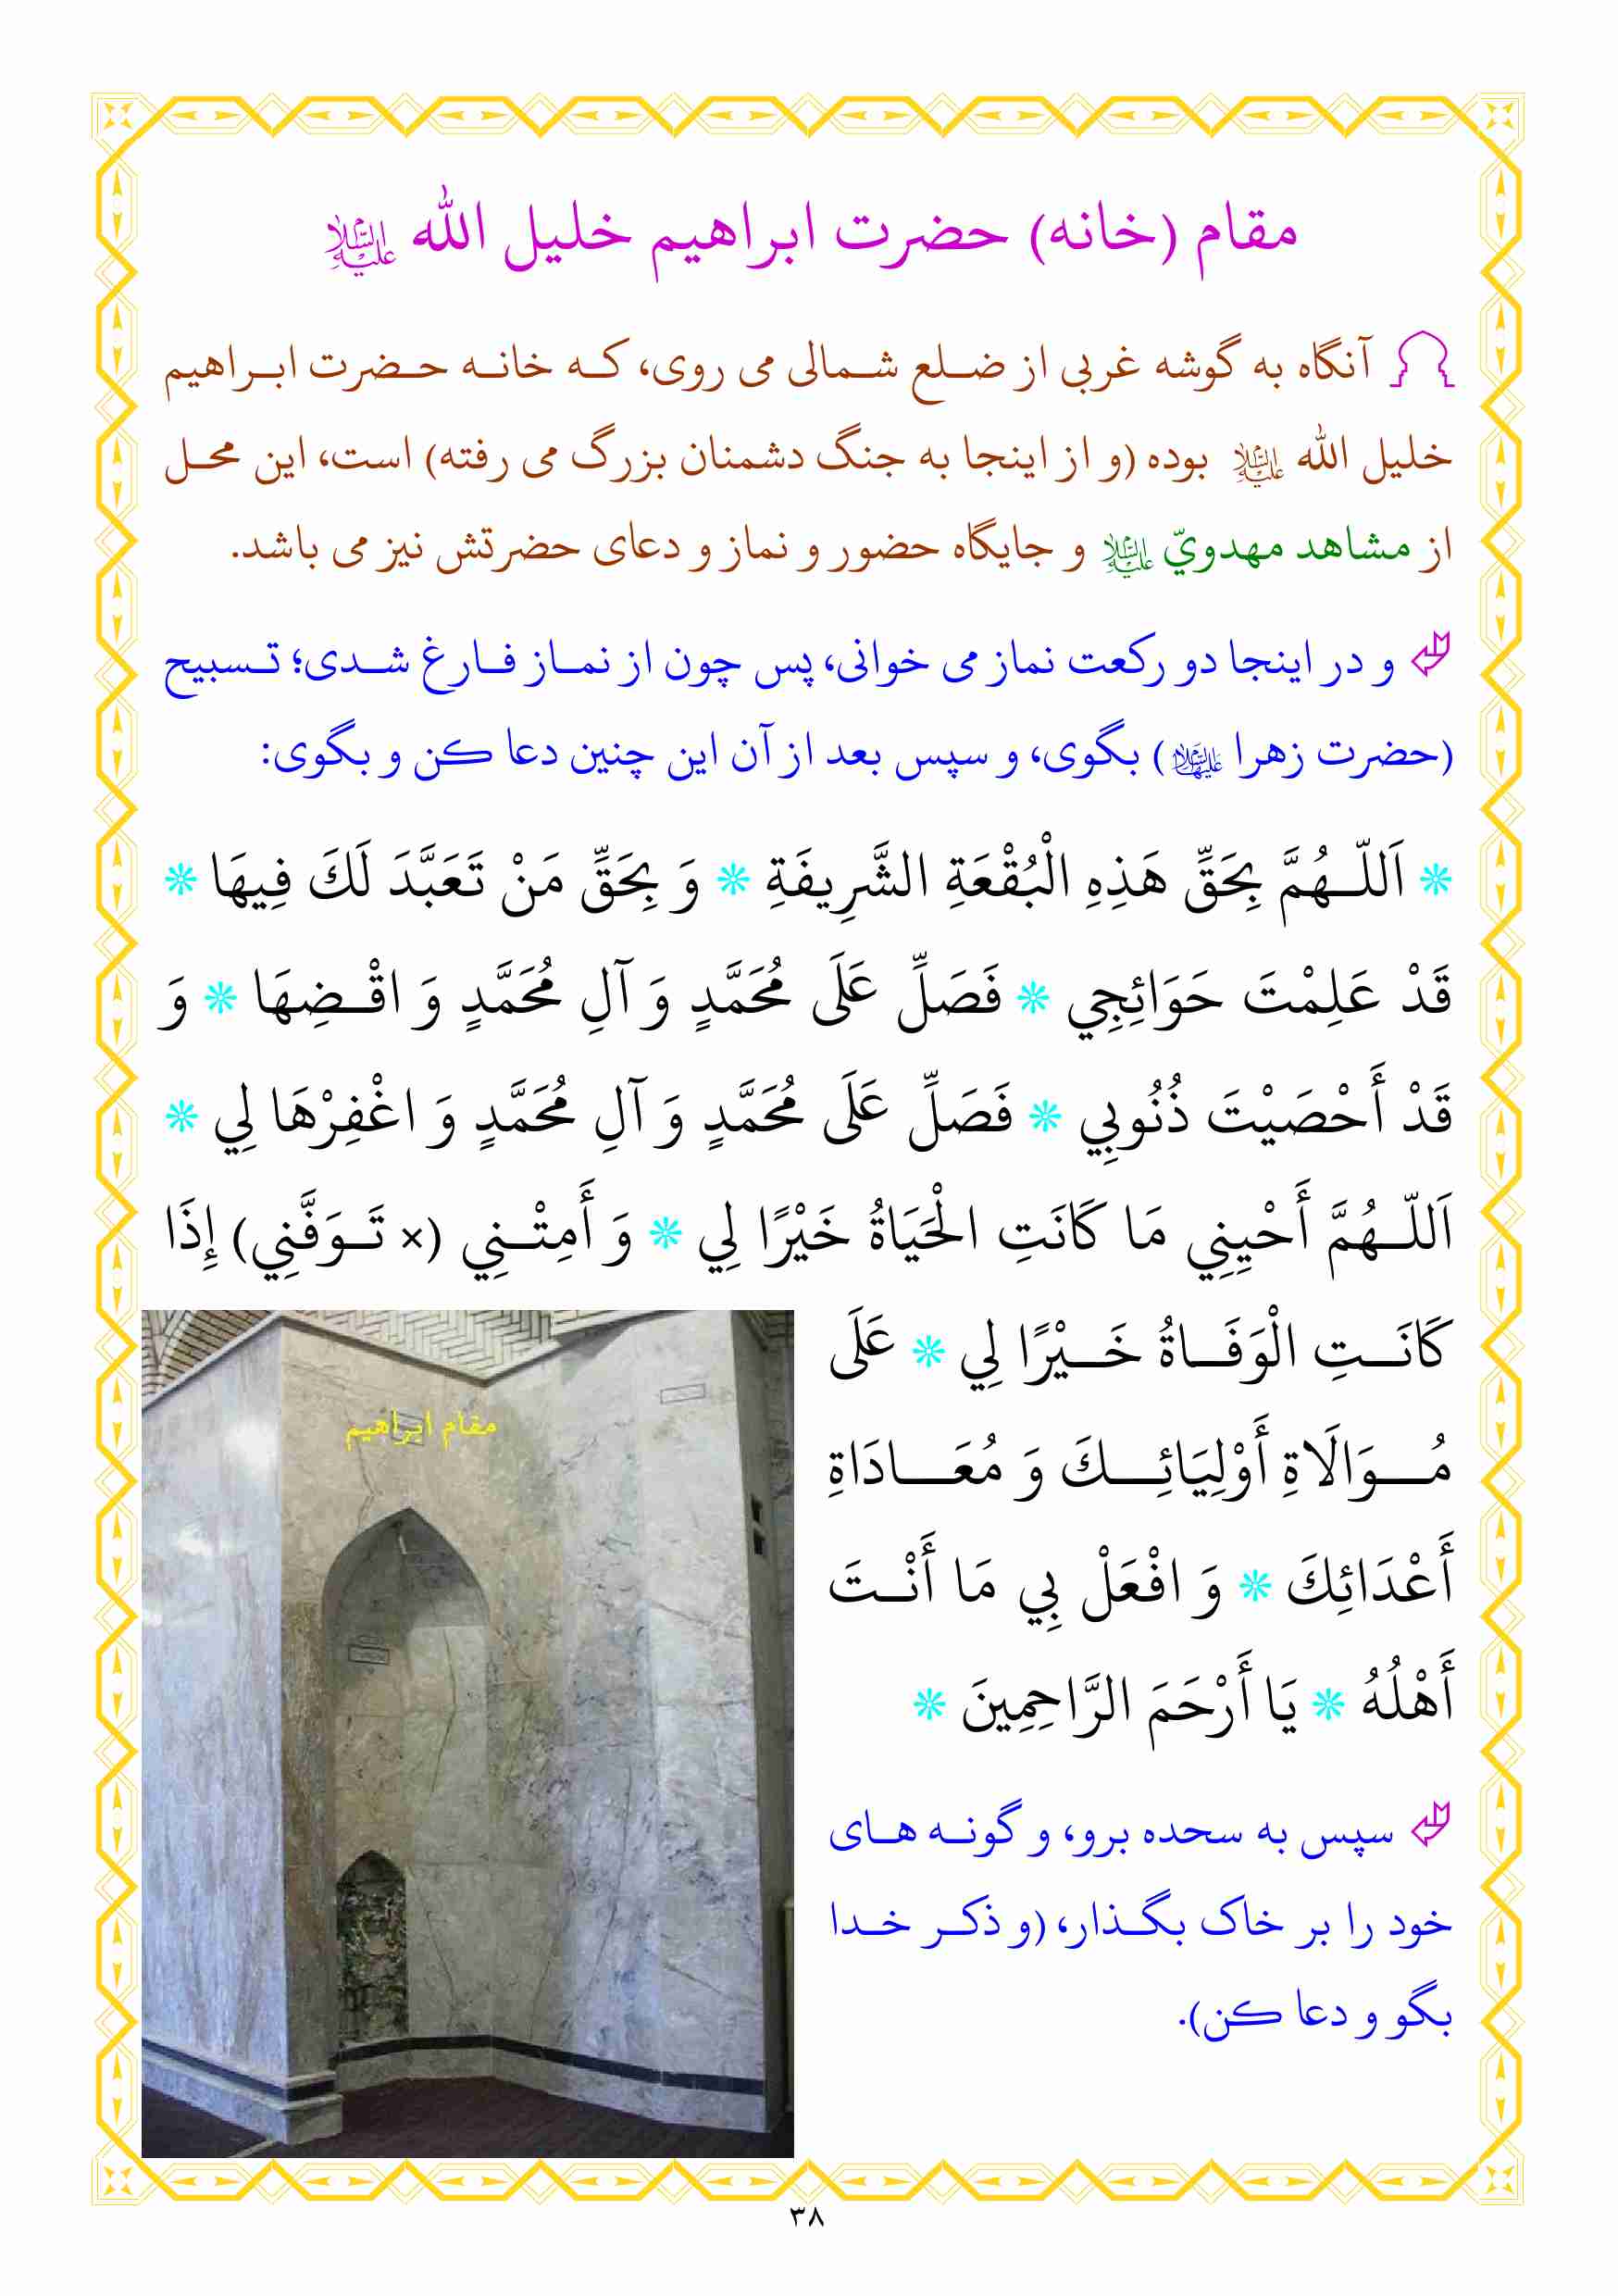 مقام (خانه) حضرت ابراهیم خلیل الله علیه السلام
آنگاه به گوشه غربی از ضلع شمالی می روی، که خانه حضرت ابراهیم
خلیل الله علیه السلام بوده (و از اینجا به جنگ دشمنان بزرگ می رفته) است، این محل
از مشاهد مهدويّ علیه السلام و جایگاه حضور و نماز و دعای حضرتش نیز می باشد.
و در اینجا دو رکعت نماز می خوانی، پس چون از نماز فارغ شدی؛ تسبیح
(حضرت زهرا علیها السلام) بگوی، و سپس بعد از آن این چنین دعا کن و بگوی:
* اَللّهُمَّ بِحَقِّ هَذِهِ الْبُقْعَةِ الشَّرِيفَةِ * وَ بِحَقِّ مَنْ تَعَبَّدَ لَكَ فِيهَا *
قَدْ عَلِمْتَ حَوَائِجِي * فَصَلِّ عَلَى مُحَمَّدٍ وَ آلِ مُحَمَّدٍ وَ اقْضِهَا * وَ
قَدْ أَحْصَيْتَ ذُنُوبِي * فَصَلِّ عَلَى مُحَمَّدٍ وَ آلِ مُحَمَّدٍ وَ اغْفِرْهَا لِي *
اَللّهُمَّ أَحْيِنِي مَا كَانَتِ الْحَيَاةُ خَيْرًا لِي * وَ أَمِتْنِي (× تَوَفَّنِي) إِذَا
كَانَتِ الْوَفَاةُ خَيْرًا لِي * عَلَى
مُوَالَاةِ أَوْلِيَائِكَ وَ مُعَادَاةِ
أَعْدَائِكَ * وَ افْعَلْ بِي مَا أَنْتَ
أَهْلُهُ * يَا أَرْحَمَ الرَّاحِمِينَ *
مقام ابراهیم
سپس به سحده برو، و گونه های
خود را بر خاک بگذار، (و ذکر خدا
بگو و دعا کن).
۳۸